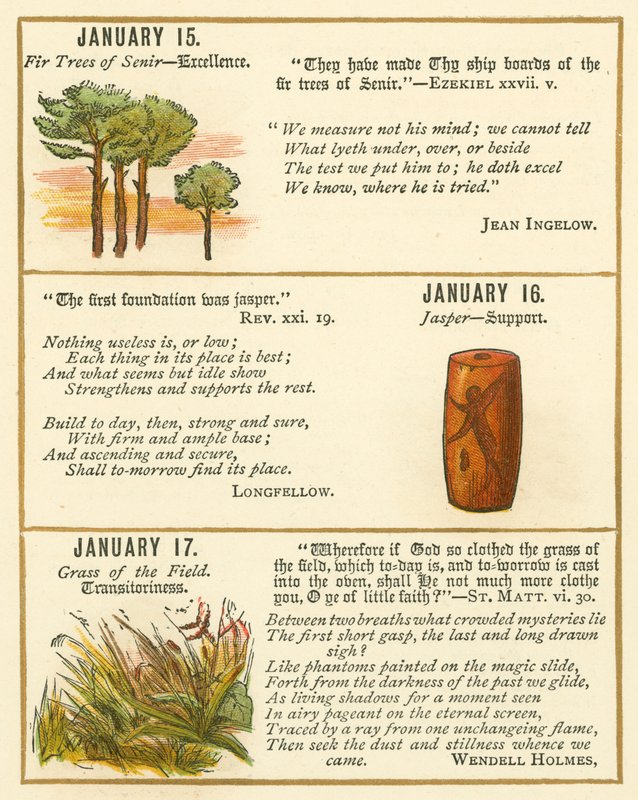 JANUARY 15.
Fir Trees of Senir—Excellence.
"They have made Thy ship boards of the
fir trees of Senir."—EZEKIEL xxvii. v.
"We measure not his mind; we cannot tell
What lyeth under, over, or beside
The test we put him to; he doth excel
We know, where he is tried."
JEAN INGELOW.
"The first foundation was jasper."
REV. xxi. 19.
Nothing useless is, or low;
Each thing in its place is best;
And what seems but idle show
Strengthens and supports the rest.
Build to day, then, strong and sure,
With firm and ample base;
And ascending and secure,
Shall to-morrow find its place.
LONGFELLOW.
JANUARY 16.
Jasper—Support.
JANUARY 17.
Grass of the Field.
Transitoriness.
"Wherefore if God so clothed the grass of
the field, which to-day is, and to-worrow is cast
into the oven, shall He not much more clothe
you, O ye of little faith?"—ST. MATT. vi. 30.
Between two breaths what crowded mysteries lie
The first short gasp, the last and long drawn
sigh?
Like phantoms painted on the magic slide,
Forth from the darkness of the past we glide,
As living shadows for a moment seen
In airy pageant on the eternal screen,
Traced by a ray from one unchangeing flame,
Then seek the dust and stillness whence we
came. WENDELL HOLMES,